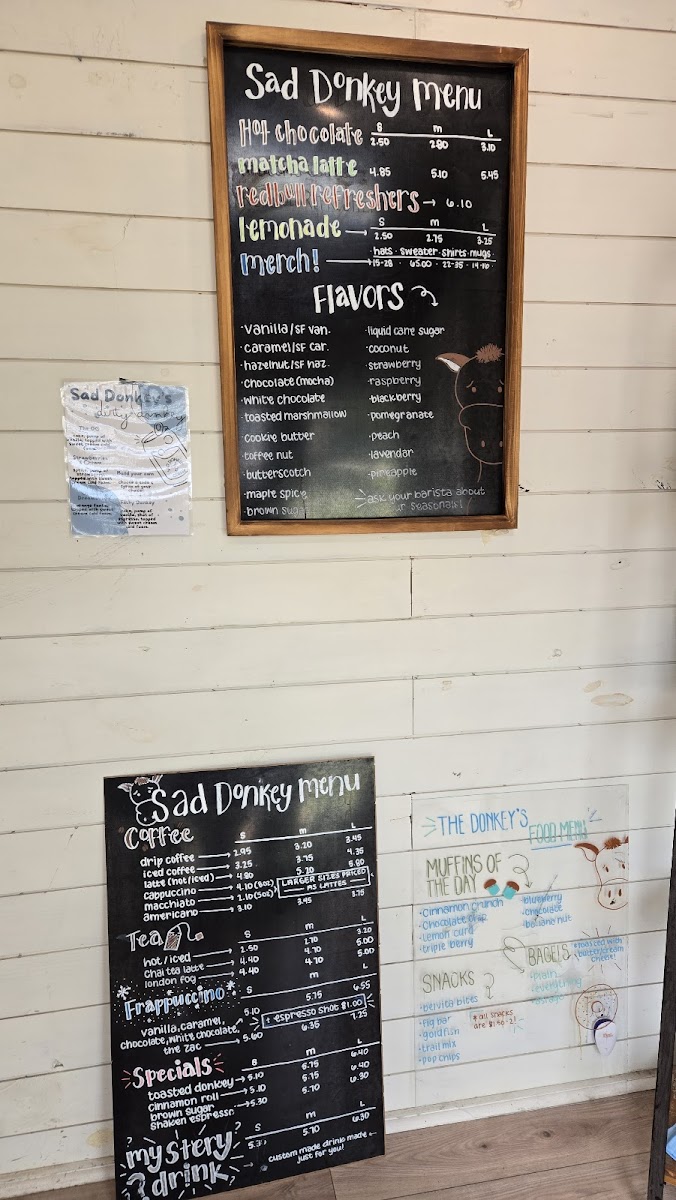 Sad Donkey Menu
Hot chocolate S m L
2.50 2.80 3.10
matcha latte 4.85 5.10 5.45
redbull refreshers → 6.10
lemonade → S m L
2.50 2.75 3.25
merch! → hats · sweater · shirts · mugs
15-28 · 65.00 · 22-35 · 14-
Flavors
·vanilla/SF van.
·caramel/SF car.
·hazelnut/SF haz.
·chocolate (mocha)
·white chocolate
·toasted marshmallow
·cookie butter
·toffee nut
·butterscotch
·maple spice
·brown sugar
·liquid cane sugar
·coconut
·strawberry
·raspberry
·blackberry
·pomegranate
·peach
·lavendar
·pineapple
ask your barista about
our seasonals!
Sad Donkey's
dirty
Sad Donkey Menu
Coffee S m L
drip coffee → 2.95 3.20 3.45
iced coffee → 3.25 3.75 4.35
latte (hot/iced) → 4.80 5.20 5.80
cappuccino → 4.10 (8oz)
macchiato → (5oz)
LARGER SIZES PRICED
AS LATTES
americano → 3.10 3.45 3.75
Tea S m L
hot/iced → 2.50 2.70 3.20
chai tea latte → 4.40 4.70 5.00
london fog → 4.40 4.70 5.00
Frappuccino S m L
vanilla, caramel, 5.10 5.75 6.55
chocolate, white chocolate + espresso shot $1.00
the zac → 5.60 6.35 7.25
Specials S m L
toasted donkey → 5.10 5.75 6.40
cinnamon roll → 5.10 5.75 6.40
brown sugar → 5.30 5.70 6.30
shaken espresso
mystery S m L
drink 5.70 6.30
custom made drink made
just for you!
THE DONKEY'S
FOOD MENU
MUFFINS OF
THE DAY
·cinnamon crunch
·chocolate chip
·lemon curd
·triple berry
·blueberry
·chocolate
·banana nut
BAGELS
*toasted with
butter/cream
cheese!
·plain
·everything
SNACKS
·belvita bites
·fig bar
·goldfish
·trail mix
·pop chips
*all snacks
are $1.50-2!